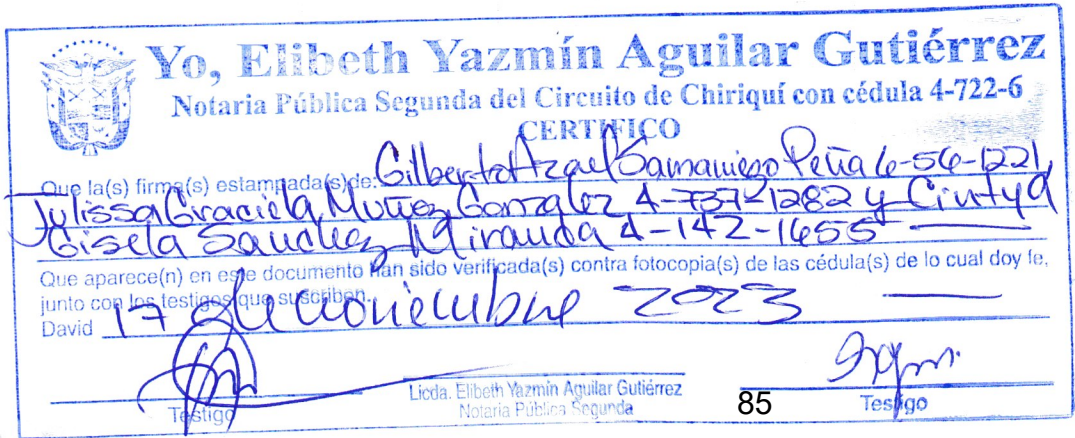 Yo, Elibeth Yazmín Aguilar Gutiérrez
Notaria Pública Segunda del Circuito de Chiriquí con cédula 4-722-6
CERTIFICO
Que la(s) firma(s) estampada(s)de: Gilberto Azael Samaniego Peña 6-56-1221,
Julissa Graciela Muñoz Gonzalez 4-737-1282 y Cintya
Gisela Sanchez Miranda 4-142-1655
Que aparece(n) en este documento han sido verificada(s) contra fotocopia(s) de las cédula(s) de lo cual doy fe,
junto con los testigos que suscriben.
David 17 de noviembre 2023
Licda. Elibeth Yazmín Aguilar Gutiérrez
Notaria Pública Segunda
Testigo
85
Testigo